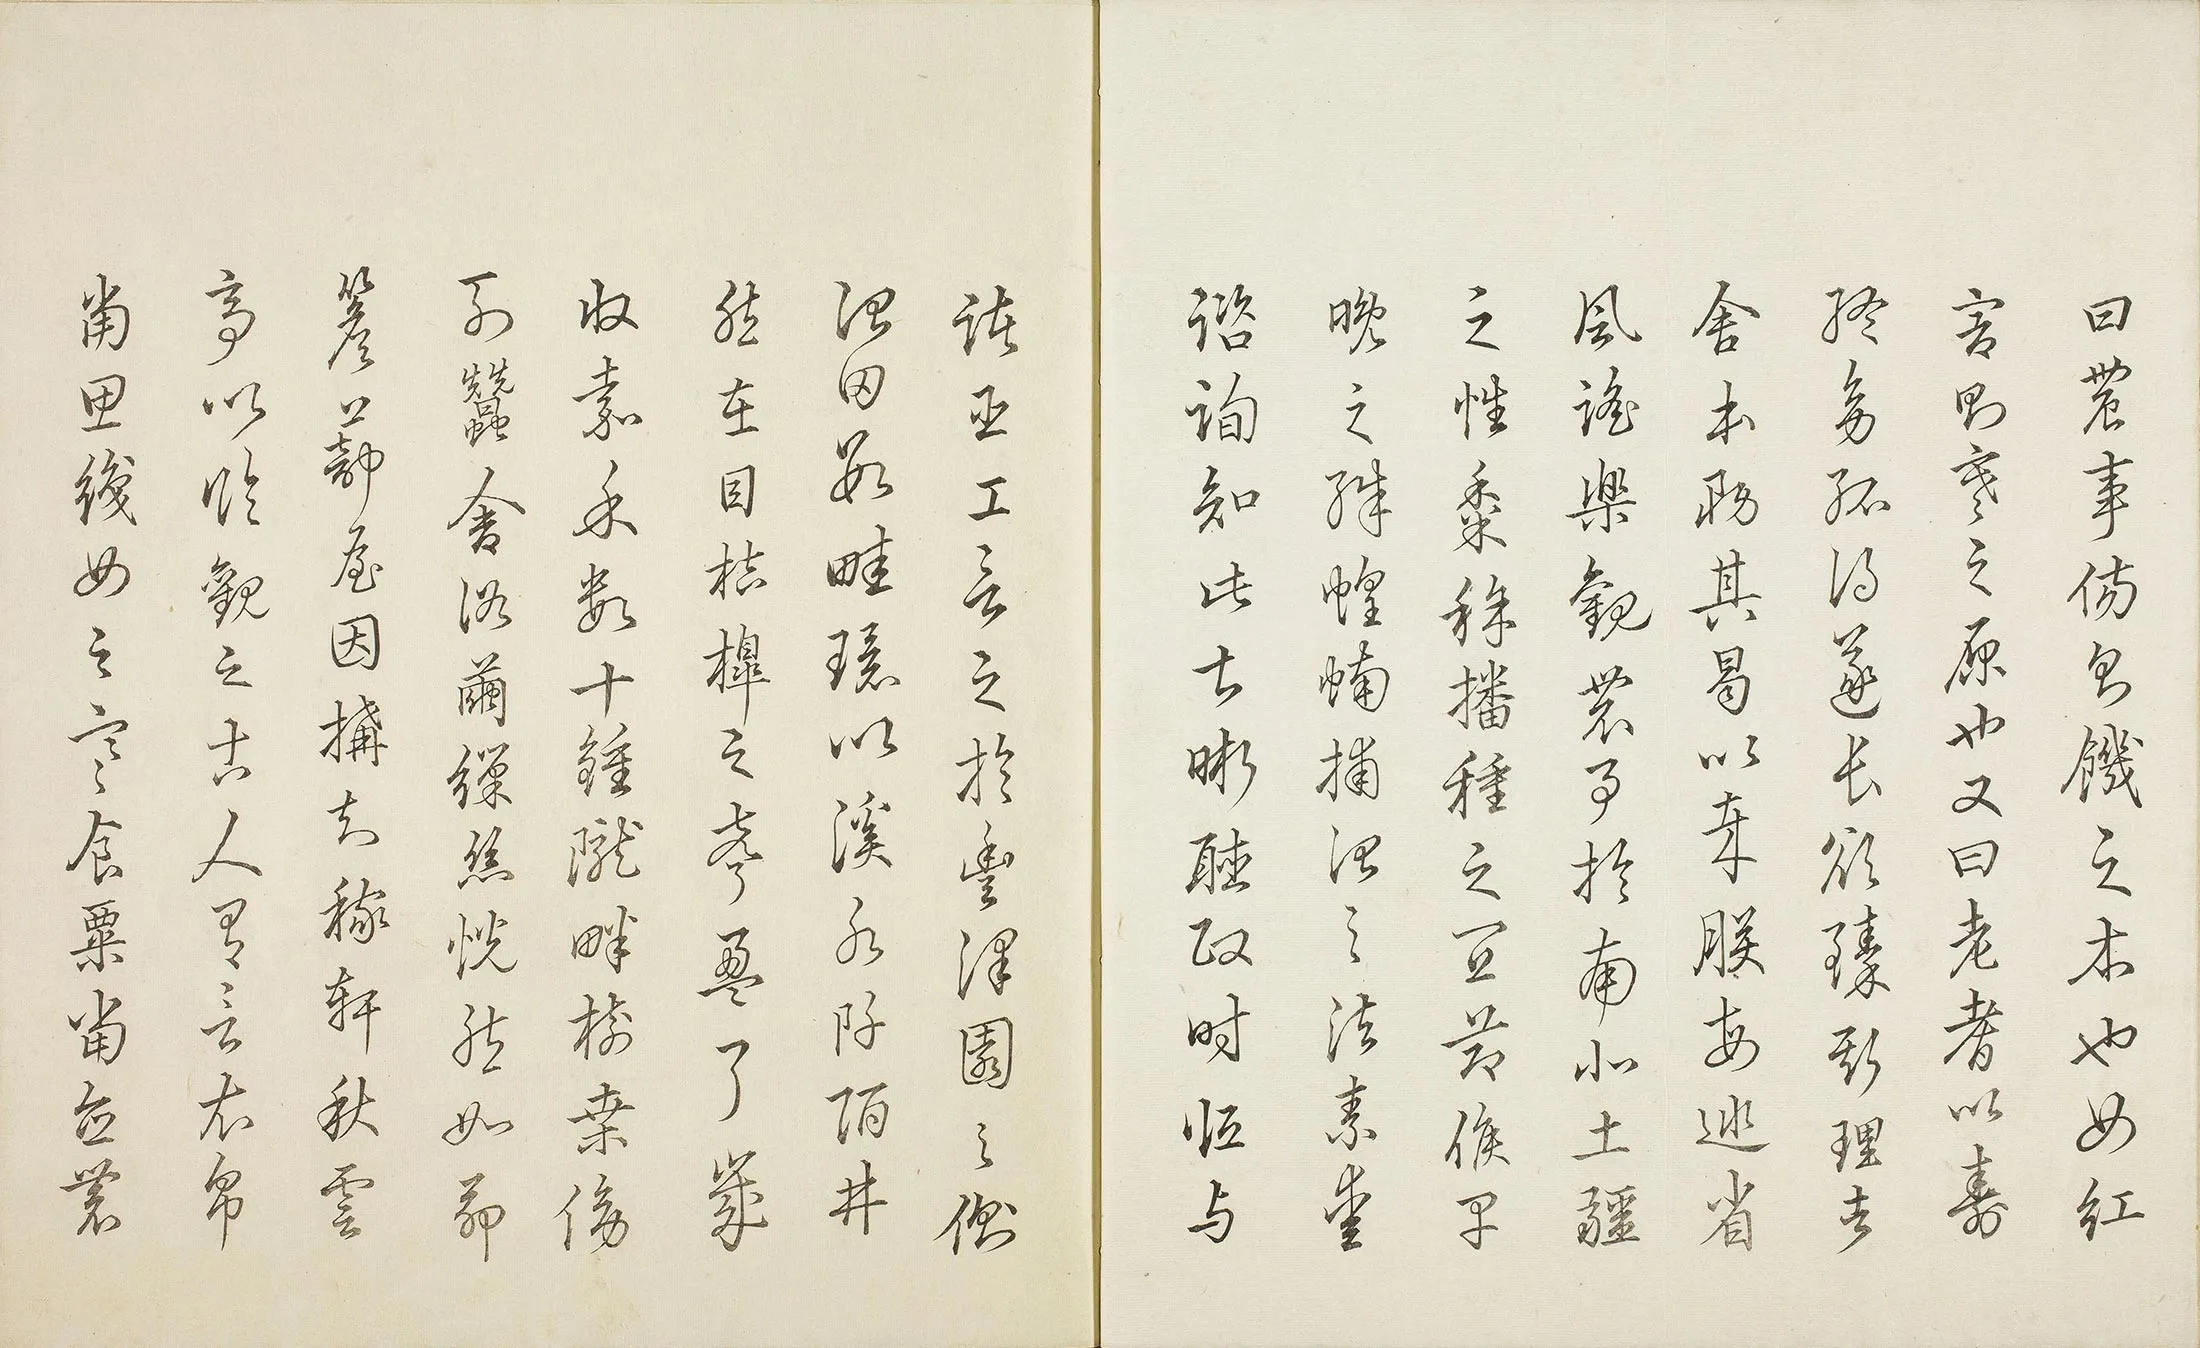 曰農事傷則饑之本也女紅
害則寒之原也又曰老耆以壽
終幼孤得遂長欲臻斯理者
舍本務其曷以哉朕每巡省
風謠樂觀農事於南北土疆
之性黍稌播種之宜節候早
晚之殊蝗蝻捕治之法素愛
諮詢知此甚晰聽政時恒与
諸臣工言之於豐澤園之側
治田數畦環以溪水阡陌井
然在目桔槔之聲盈耳歲
收嘉禾數十鍾隴畔樹桑傍
列蠶舍浴繭繅絲恍然如茆
簷蔀屋因搆知稼軒秋雲
亭以臨觀之古人有言衣帛
當思織女之寒食粟當念農